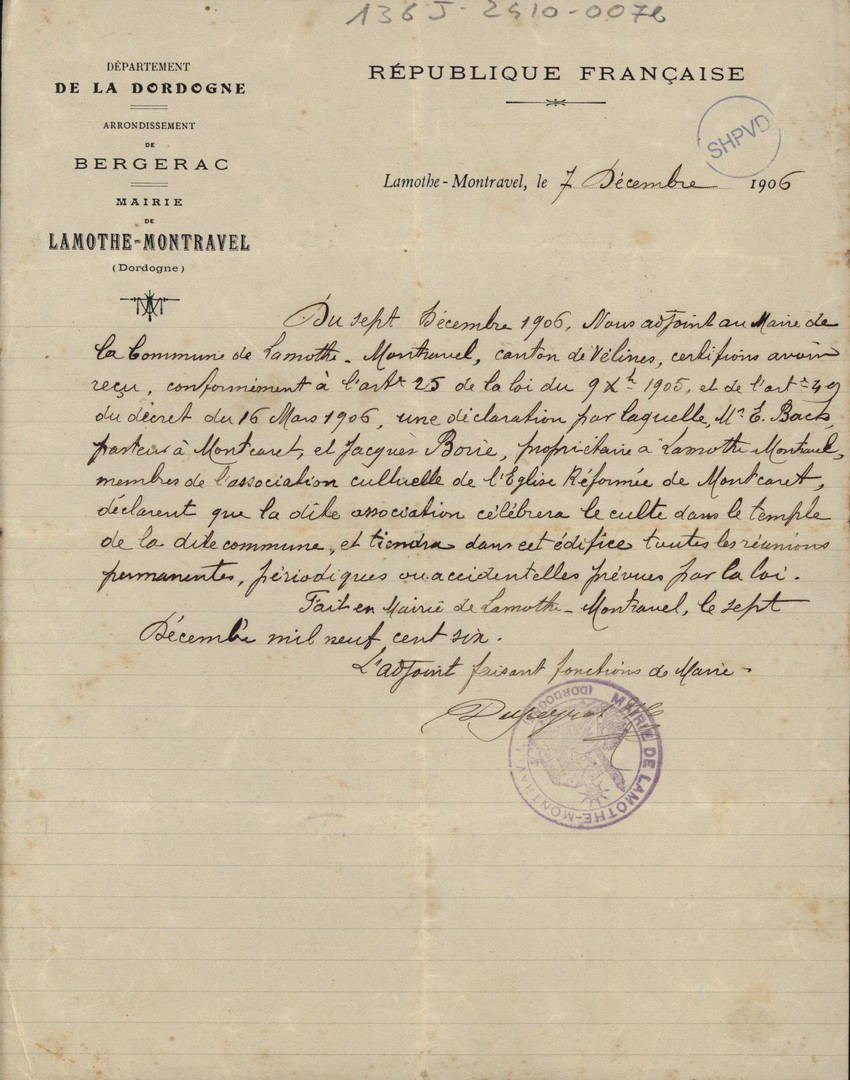 136 J - 2910 - 007b
DÉPARTEMENT
DE LA DORDOGNE
ARRONDISSEMENT
DE
BERGERAC
MAIRIE
DE
LAMOTHE-MONTRAVEL
(Dordogne)
RÉPUBLIQUE FRANÇAISE
SHPVD
Lamothe-Montravel, le 7 Décembre 1906
Du sept Décembre 1906, Nous adjoint au Maire de
la Commune de Lamothe-Montravel, canton de Vélines, certifions avoir
reçu, conformément à l'art. 25 de la loi du 9 Xbre 1905, et de l'art. 49
du décret du 16 Mars 1906, une déclaration par laquelle, Mrs E.
pasteur à Montcaret, et Jacques Borie, propriétaire à Lamothe Montravel,
membres de l'association cultuelle de l'Eglise Réformée de Montcaret,
déclarent que la dite association célébrera le culte dans le temple
de la dite commune, et tiendra dans cet édifice toutes les réunions
permanentes, périodiques ou accidentelles prévues par la loi.
Fait en Mairie de Lamothe-Montravel, le sept
Décembre mil neuf cent six.
L'adjoint faisant fonctions de Maire.
Dupeyrat
MAIRIE DE LAMOTHE-MONTRAVEL (DORDOGNE)